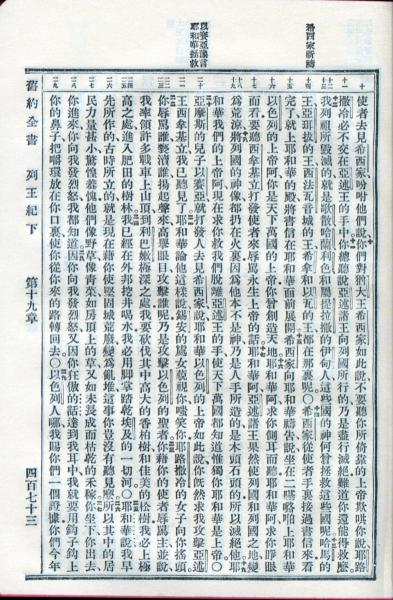 希西家祈禱
以賽亞預言
耶和華拯救
使者去見希西家吩咐他們說你們對猶大王希西家如此說不要聽你所倚靠的上帝欺哄你說耶路
撒冷必不交在亞述王的手中你總聽說亞述諸王向列國所行的乃是盡行滅絕難道你還能得救麼
我列祖所毀滅的就是歌散哈蘭利色和屬提拉撒的伊甸人這些國的神何曾拯救這些國呢哈馬的
王亞珥拔的王西法瓦音城的王希拿和以瓦的王都在那裏呢〇希西家從使者手裏接過書信來看
完了就上耶和華的殿將書信在耶和華面前展開希西家向耶和華禱告說坐在二啪上耶和華
以色列的上帝阿你是天下萬國的上帝你曾創造天地耶和華阿求你側耳而聽耶和華阿求你睜眼
而看要聽西拿基立打發使者來辱罵永生上帝的話耶和華阿亞述諸王果然使列國和列國之地變
爲荒涼將列國的神像都扔在火裏因爲他本不是神乃是人手所造的是木頭石頭的所以滅絕他耶
和華我們的上帝阿現在求你救我們脫離亞述王的手使天下萬國都知道惟獨你耶和華是上帝〇
亞摩斯的兒子以賽亞就打發人去見希西家說耶和華以色列的上帝如此說你既然求我攻擊亞述
王西拿基立我已聽見了耶和華論他這樣說錫安的處女藐視你嗤笑你耶路撒冷的女子向你搖頭
你辱罵誰褻瀆誰揚起聲來高舉眼目攻擊誰呢乃是攻擊以色列的聖者你藉你的使者辱罵主並說
我率領許多戰車上山頂到利巴嫩極深之處我要砍伐其中高大的香柏樹和佳美的松樹我必上極
高之處進入肥田的樹林我已經在外邦挖井喝水我必用腳掌踏乾埃及的一切河〇耶和華說我早
先所作的古時所立的就是現在藉你使堅固城荒廢變爲亂堆這事你豈沒有聽見麼所以其中的居
民力量甚小驚惶羞愧他們像野草像青菜如房頂上的草又如未長成而枯乾的禾稼你坐下你出去
你進來你向我發烈怒我都知道因你向我發烈怒又因你狂傲的話達到我耳中我就要用鉤子鉤上
你的鼻子把嚼環放在你口裏使你從你來的路轉回去〇以色列人哪我賜你們一個證據你們今年
舊約全書 列王紀下 第十九章 四百七十三